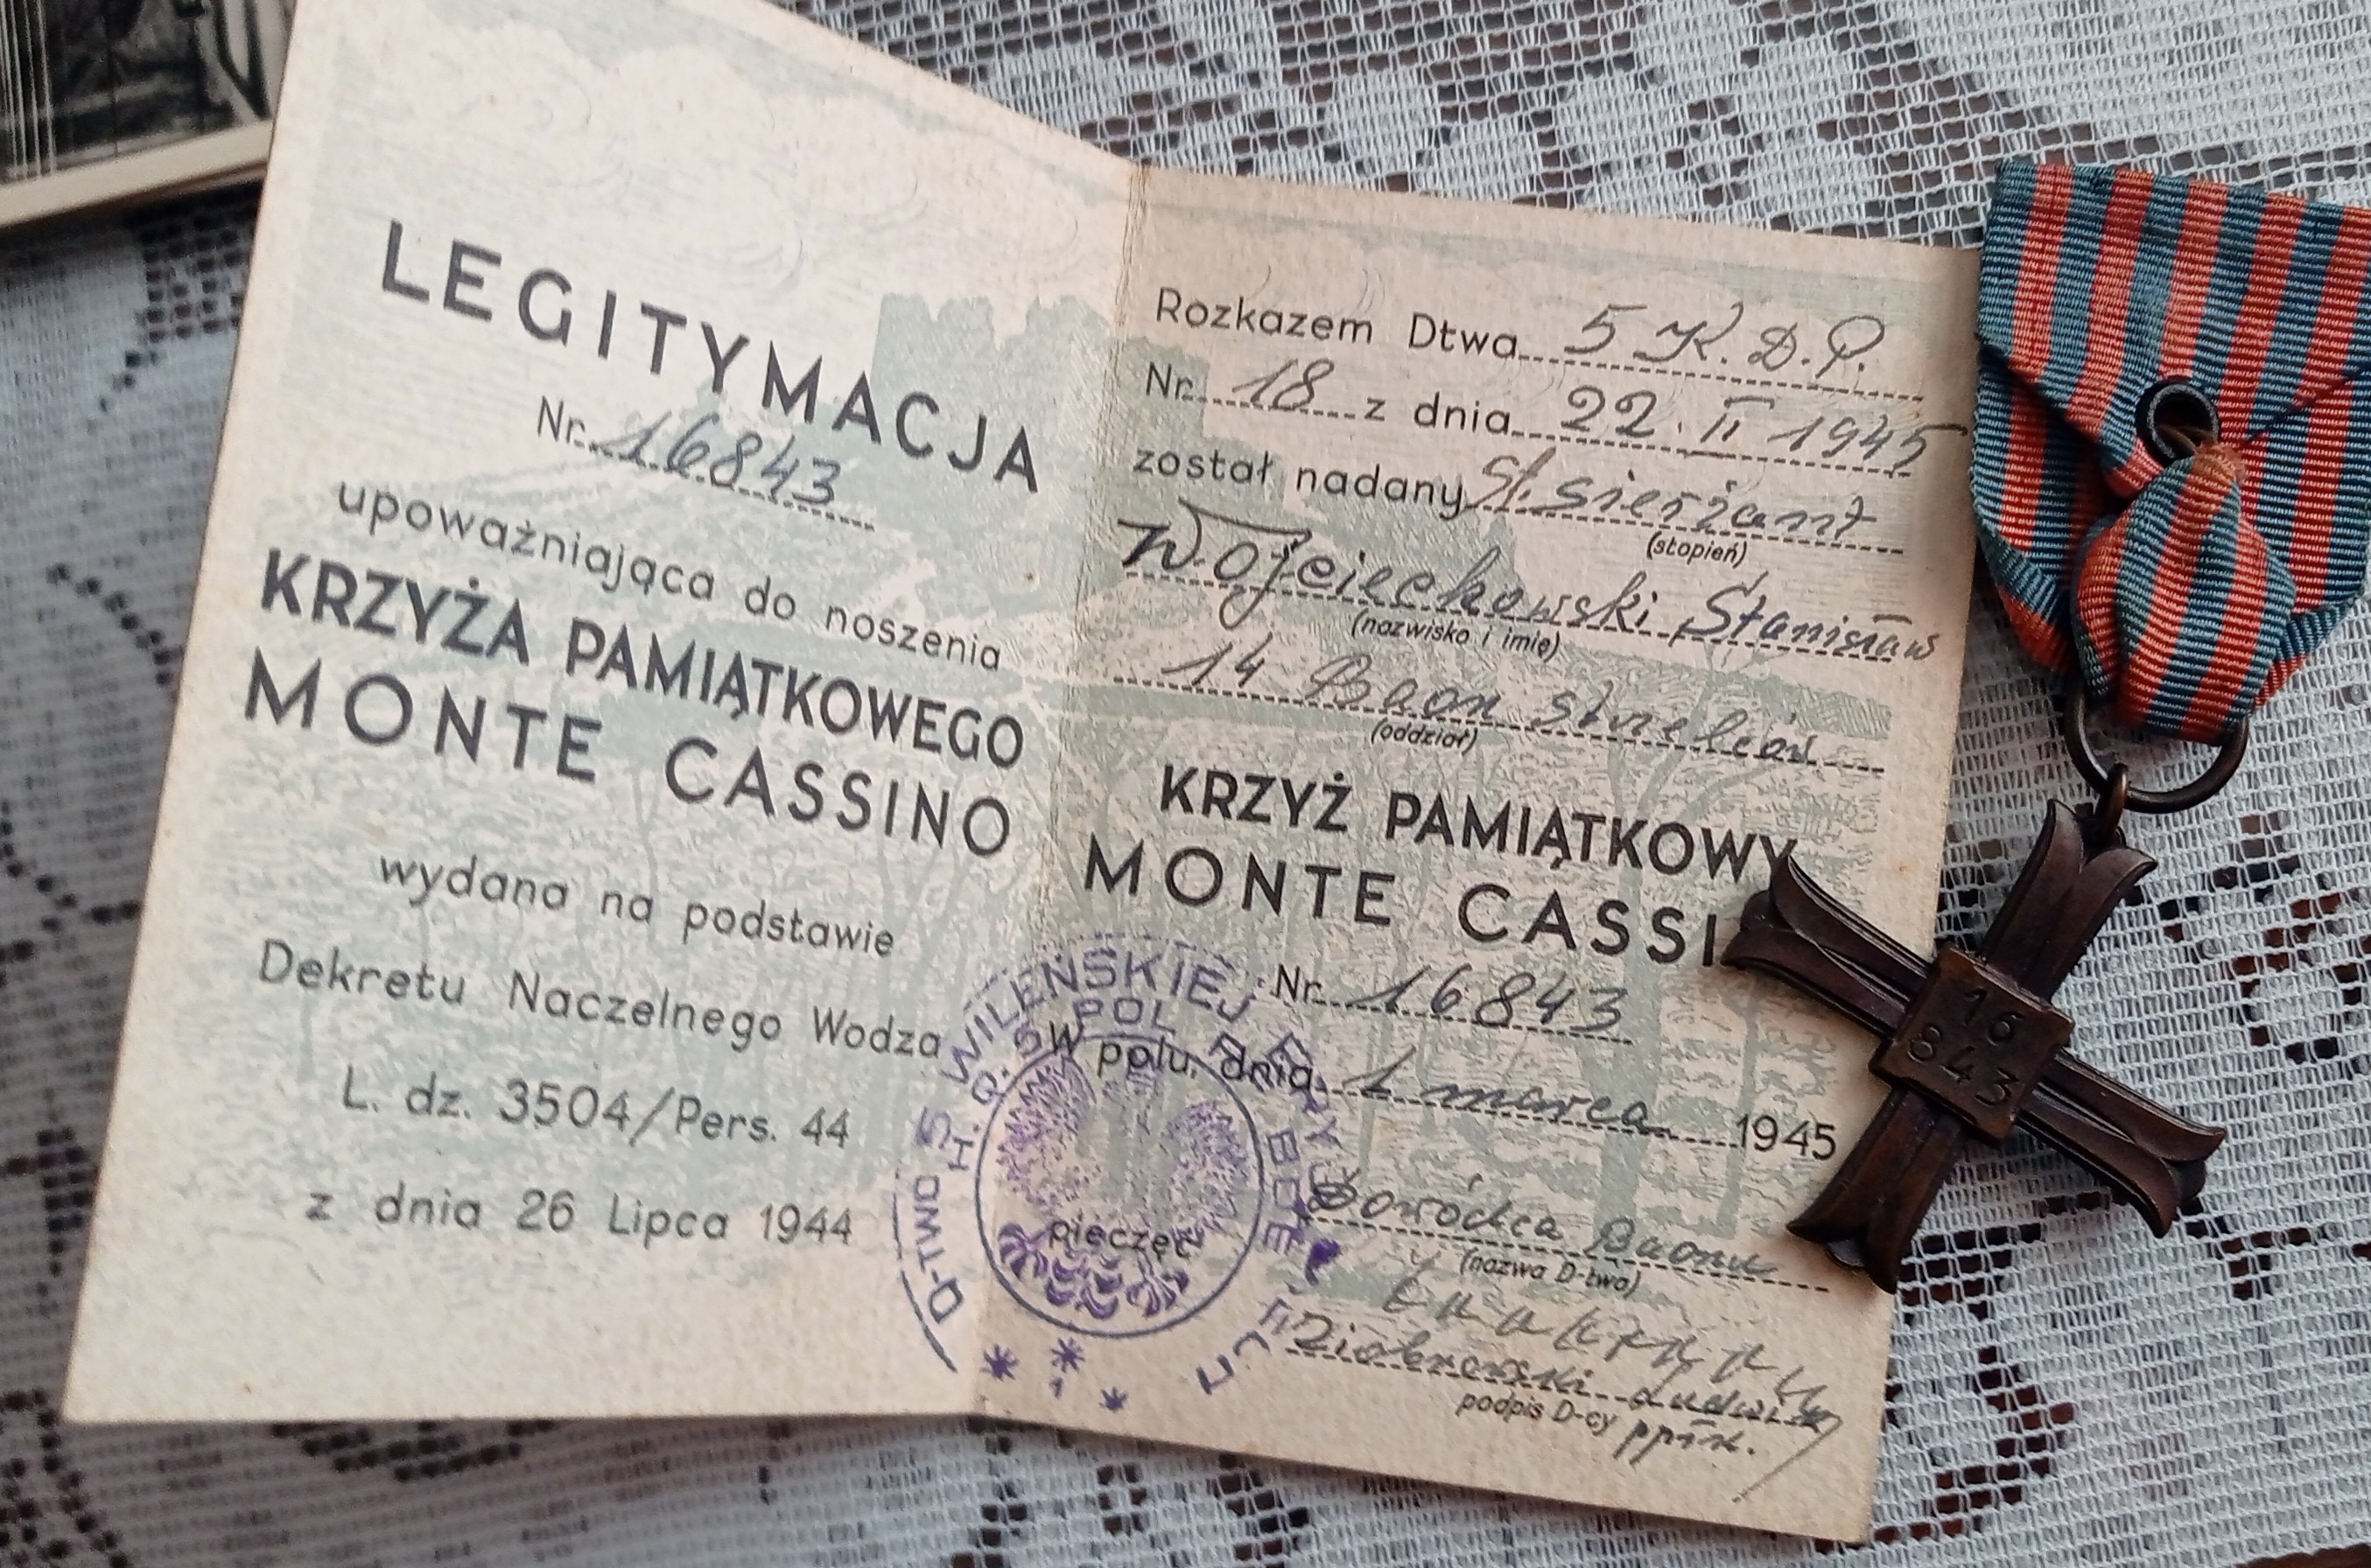 LEGITYMACJA
Nr. 16843
upoważniająca do noszenia
KRZYŻA PAMIĄTKOWEGO
MONTE CASSINO
wydana na podstawie
Dekretu Naczelnego Wodza
L. dz. 3504/Pers. 44
z dnia 26 Lipca 1944
Rozkazem Dtwa 5 K.D.P.
Nr. 18 z dnia 22.II 1945
został nadany St. sierżant
(stopień)
Wojciechowski Stanisław
(nazwisko i imię)
14 Baon strzelców
(oddział)
KRZYŻ PAMIĄTKOWY
MONTE CASSI
Nr. 16843
w polu, dnia 1 marca 1945
pieczęć
Dowódca Baonu
(nazwa D-twa)
Ziobrowski Ludwik
podpis D-cy ppłk.
D-TWO 5 WILEŃSKIEJ
H.Q. 5 POL
1
16
843